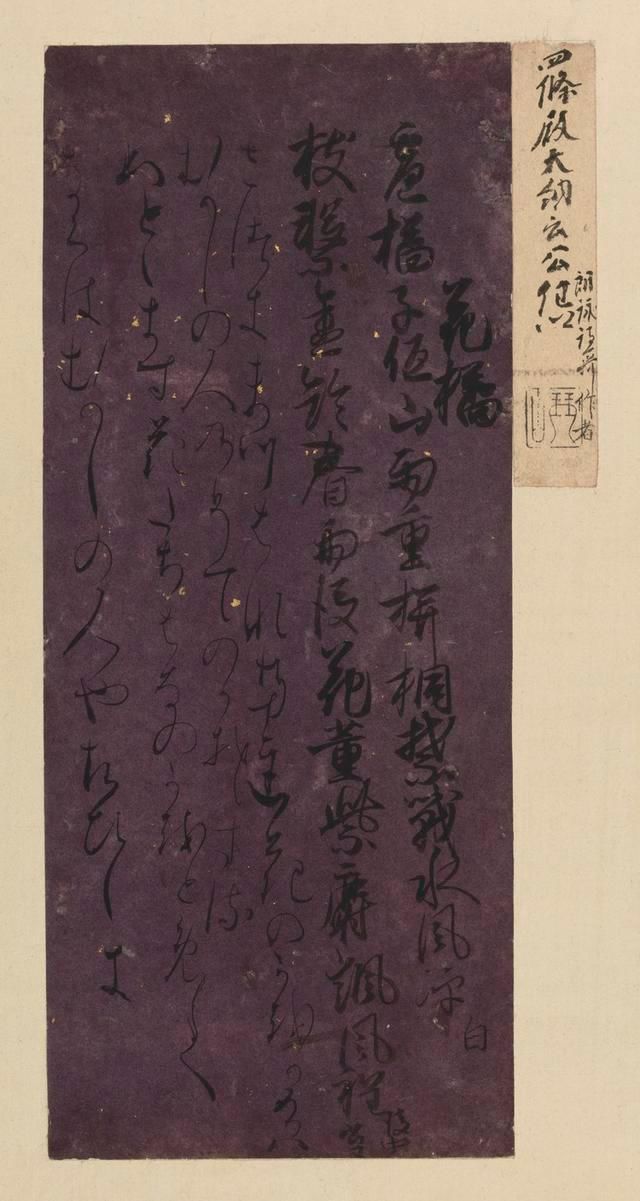 四條殿大納言公任
朗詠詩哥作者
琴山
花橘
盧橘子低山雨重栟櫚葉戰水風凉 白
枝繋金鈴春雨後花薫紫麝颯風程
さつきまつはなたち花のかをかけは
むかしの人のそてのかそする
ほとゝきす花たちはなのかをとめて
なくはむかしの人やこひしき